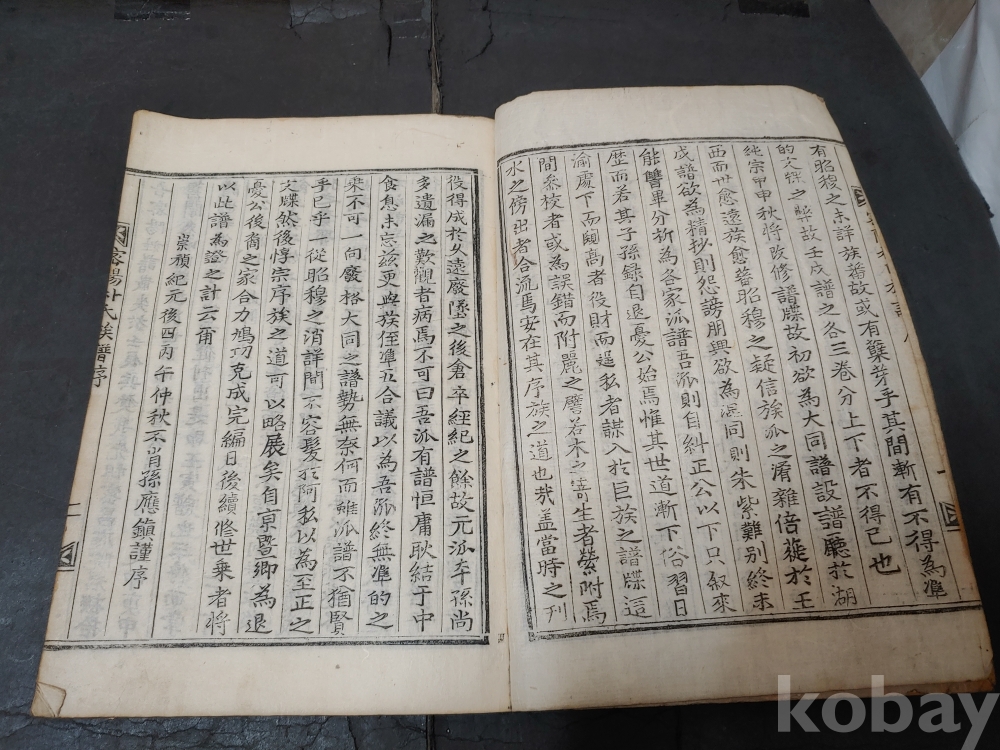 有昭穆之未詳族蕃故或有蘖芽乎其間斬有不得為準
的之弊故壬戌譜之各三巻分上下者不得已也
純宗甲申秋將改修譜牒故初欲為大同譜設譜廳於湖
西而世愈遠族愈蕃昭穆之疑信族派之淆雜倍蓰於壬
戌譜欲為精抄則怨謗朋興欲為混同則朱紫難別終未
能讐畢分析為各家派譜吾派則自糾正公以下只叙來
歷而若其子孫錄自退憂公始焉惟其世道漸下俗習日
渝處下而闖高者役財而逞私者謀入於巨族之譜牒這
間叅校者或為誤錯而附麗之譬若木之寄生者縈附焉
水之傍出者合流焉安在其序族之道也哉盖當時之刊
役得成於久遠廢墜之後倉卒經紀之餘故元派夲孫尚
多遺漏之歎觀者病焉不可曰吾派有譜恒庸耿結于中
食息未忘玆更與族侄準五合議以為吾派終無準的之
乗不可一向廢格大同之譜勢無奈何而雖派譜不猶賢
乎已乎一從昭穆之消詳間不容髮於阿私以為至正之
文牒然後惇宗序族之道可以略展矣自京曁鄉為退
憂公後裔之家合力鳩功克成完編日後續修世乗者將
以此譜為證之計云甬
崇禎紀元後四丙午仲秋不肖孫應鎮謹序
密陽朴氏族譜序
kobay